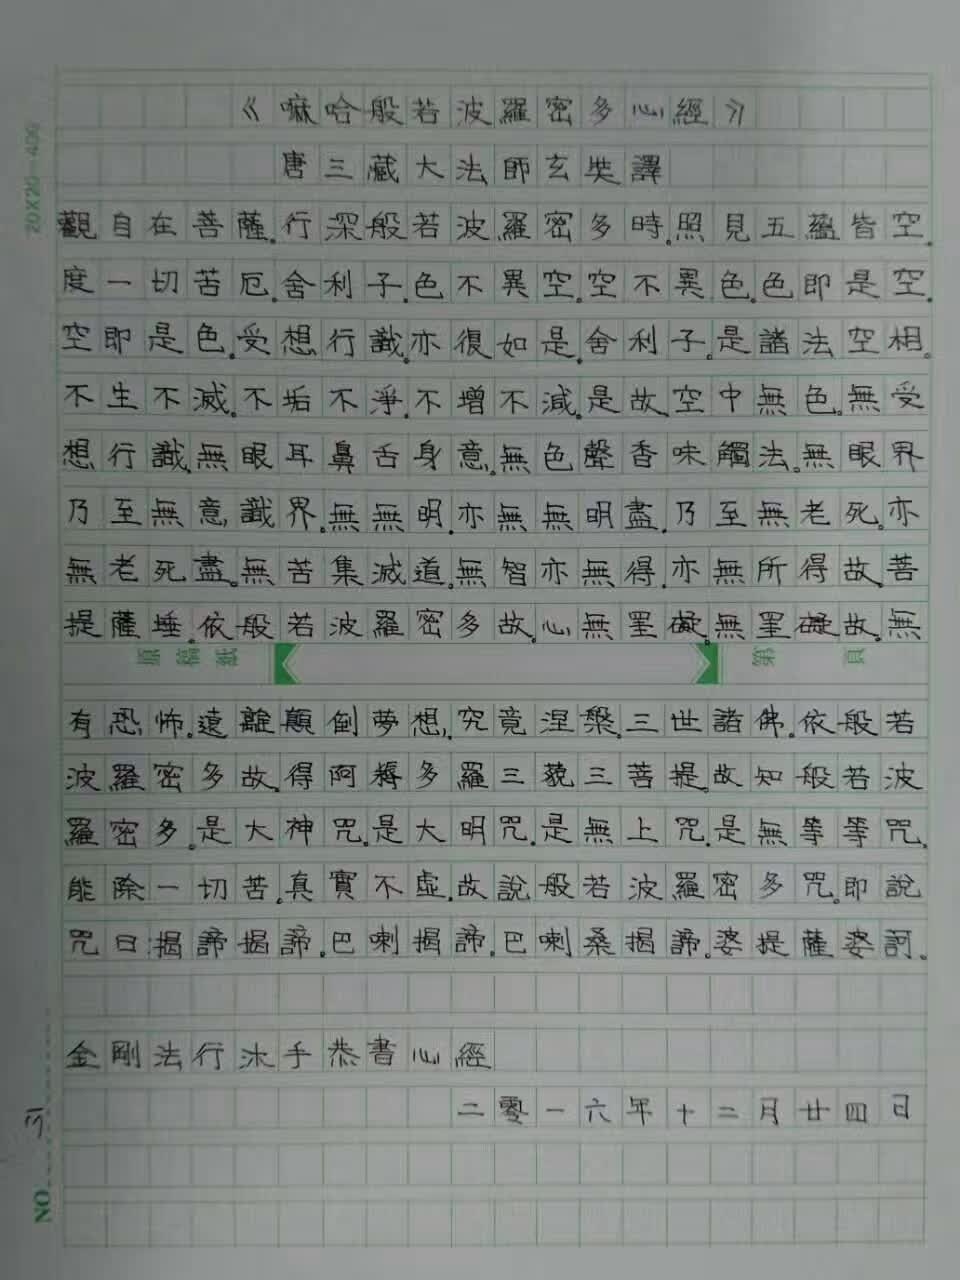 《嘛哈般若波羅密多心經》
唐三藏大法師玄奘譯
觀自在菩薩。行深般若波羅密多時。照見五蘊皆空。
度一切苦厄。舍利子。色不異空。空不異色。色即是空。
空即是色。受想行識。亦復如是。舍利子。是諸法空相。
不生不滅。不垢不淨。不增不減。是故。空中無色。無受
想行識。無眼耳鼻舌身意。無色聲香味觸法。無眼界
乃至無意識界。無無明。亦無無明盡。乃至無老死。亦
無老死盡。無苦集滅道。無智亦無得。亦無所得故。菩
提薩埵。依般若波羅密多故。心無罣礙。無罣礙故。無
原稿紙 第 頁
有恐怖。遠離顛倒夢想。究竟涅槃。三世諸佛。依般若
波羅密多故。得阿耨多羅三藐三菩提。故知般若波
羅密多。是大神咒。是大明咒。是無上咒。是無等等咒。
能除一切苦。真實不虛。故說般若波羅密多咒。即說
咒曰:揭諦揭諦。巴喇揭諦。巴喇桑揭諦。婆提薩婆訶。
金剛法行沐手恭書心經
二零一六年十二月廿四日
20X20=400
NO